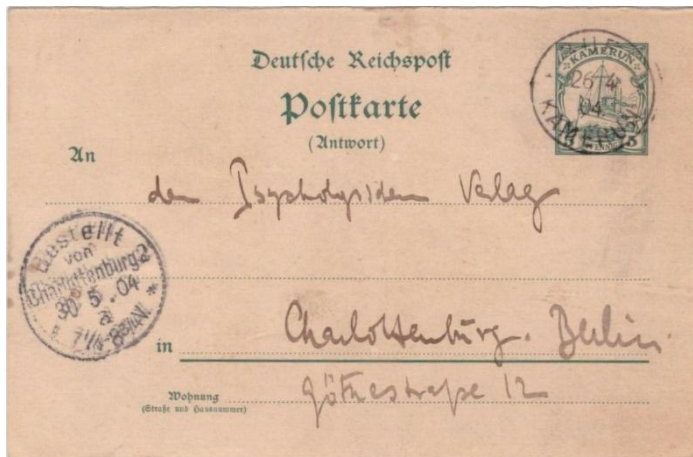 Deutsche Reichspost
Postkarte
(Antwort)
KAMERUN
26 4
04
KAMERUN
5
An
den Psychologischen Verlag
Bestellt
von
Charlottenburg 2
30.5.04
in Charlottenburg. Berlin.
Wohnung
(Straße und Hausnummer)
Göthestraße 12